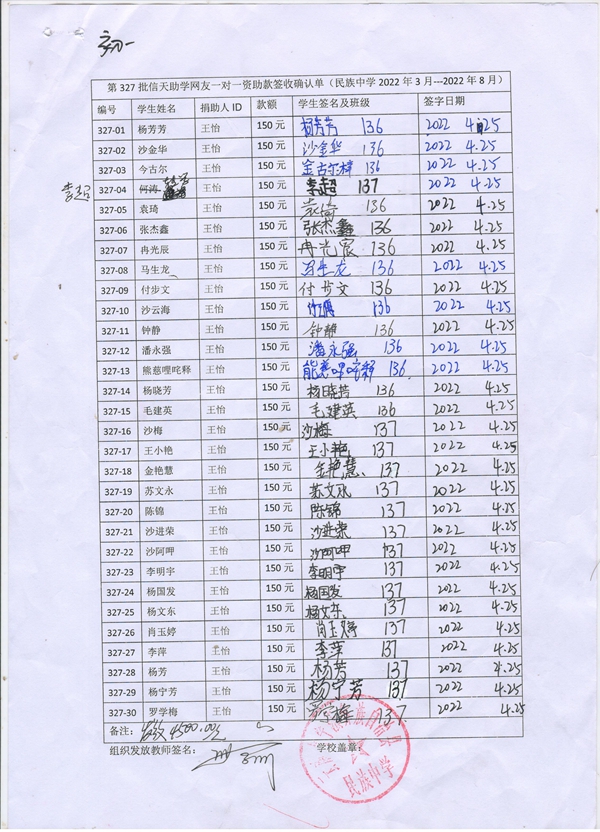 初一
第 327 批信天助学网友一对一资助款签收确认单（民族中学 2022 年 3 月---2022 年 8 月）
编号 学生姓名 捐助人 ID 款额 学生签名及班级 签字日期
327-01 杨芳芳 王怡 150 元 杨芳芳 136 2022 4.25
327-02 沙金华 王怡 150 元 沙金华 136 2022 4.25
327-03 今古尔 王怡 150 元 金古尔 136 2022 4.25
袁超 327-04 何涛 王怡 150 元 李超 137 2022 4.25
327-05 袁琦 王怡 150 元 袁琦 136 2022 4.25
327-06 张杰鑫 王怡 150 元 张杰鑫 136 2022 4.25
327-07 冉光辰 王怡 150 元 冉光宸 136 2022 4.25
327-08 马生龙 王怡 150 元 马生龙 136 2022 4.25
327-09 付步文 王怡 150 元 付步文 136 2022 4.25
327-10 沙云海 王怡 150 元 136 2022 4.25
327-11 钟静 王怡 150 元 钟静 136 2022 4.25
327-12 潘永强 王怡 150 元 潘永强 136 2022 4.25
327-13 熊慈哩咤释 王怡 150 元 136 2022 4.25
327-14 杨晓芳 王怡 150 元 杨晓芳 136 2022 4.25
327-15 毛建英 王怡 150 元 毛建英 136 2022 4.25
327-16 沙梅 王怡 150 元 沙梅 137 2022 4.25
327-17 王小艳 王怡 150 元 王小艳 137 2022 4.25
327-18 金艳慧 王怡 150 元 金艳慧 137 2022 4.25
327-19 苏文永 王怡 150 元 苏文永 137 2022 4.25
327-20 陈锦 王怡 150 元 陈锦 137 2022 4.25
327-21 沙进荣 王怡 150 元 沙进荣 137 2022 4.25
327-22 沙阿呷 王怡 150 元 沙阿呷 137 2022 4.25
327-23 李明宇 王怡 150 元 李明宇 137 2022 4.25
327-24 杨国发 王怡 150 元 杨国发 137 2022 4.25
327-25 杨文东 王怡 150 元 杨文东 137 2022 4.25
327-26 肖玉婷 王怡 150 元 肖玉婷 137 2022 4.25
327-27 李萍 王怡 150 元 李萍 137 2022 4.25
327-28 杨芳 王怡 150 元 杨芳 137 2022 4.25
327-29 杨宁芳 王怡 150 元 杨宁芳 137 2022 4.25
327-30 罗学梅 王怡 150 元 罗学梅 137 2022 4.25
备注： 4500.00元
组织发放教师签名： 学校盖章：
民族中学